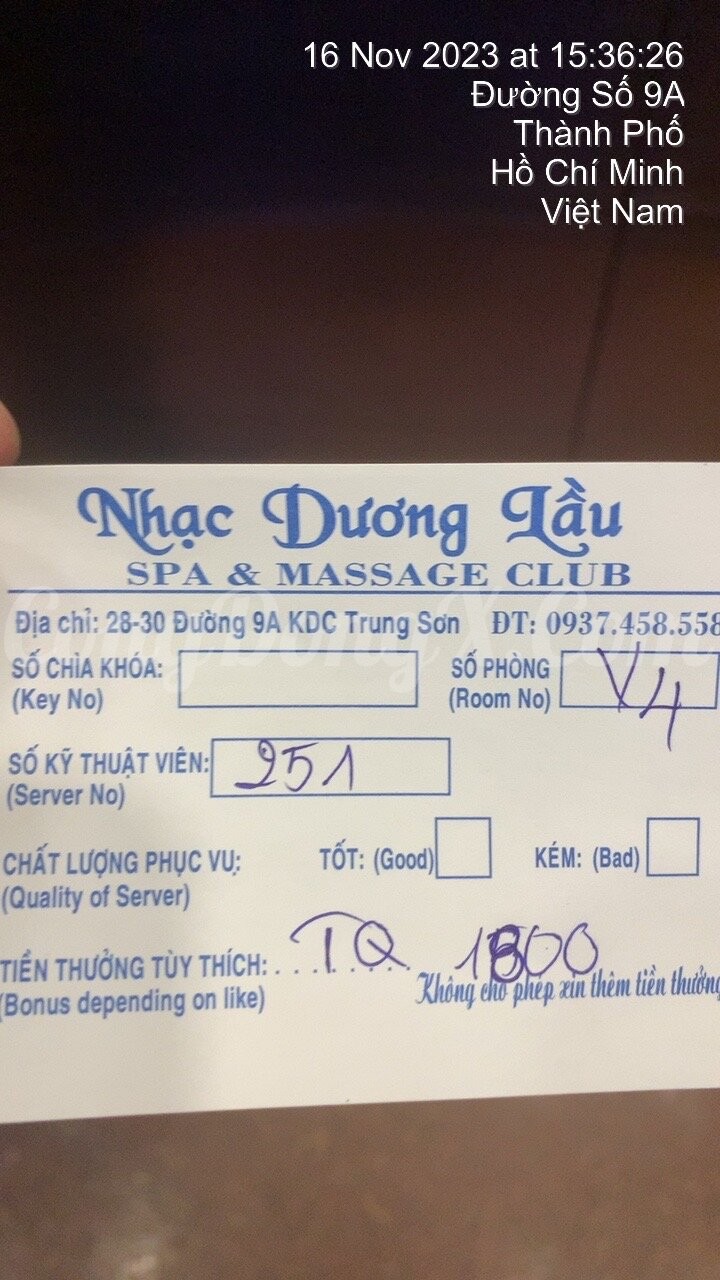 16 Nov 2023 at 15:36:26
Đường Số 9A
Thành Phố
Hồ Chí Minh
Việt Nam
Nhạc Dương Lầu
SPA & MASSAGE CLUB
Địa chỉ: 28-30 Đường 9A KDC Trung Sơn ĐT: 0937.458.558
CongDongX.Com
SỐ CHÌA KHÓA: SỐ PHÒNG V4
(Key No) (Room No)
SỐ KỸ THUẬT VIÊN: 251
(Server No)
CHẤT LƯỢNG PHỤC VỤ: TỐT: (Good) KÉM: (Bad)
(Quality of Server)
TIỀN THƯỞNG TÙY THÍCH: TQ
(Bonus depending on like) Không cho phép xin thêm tiền thưởng